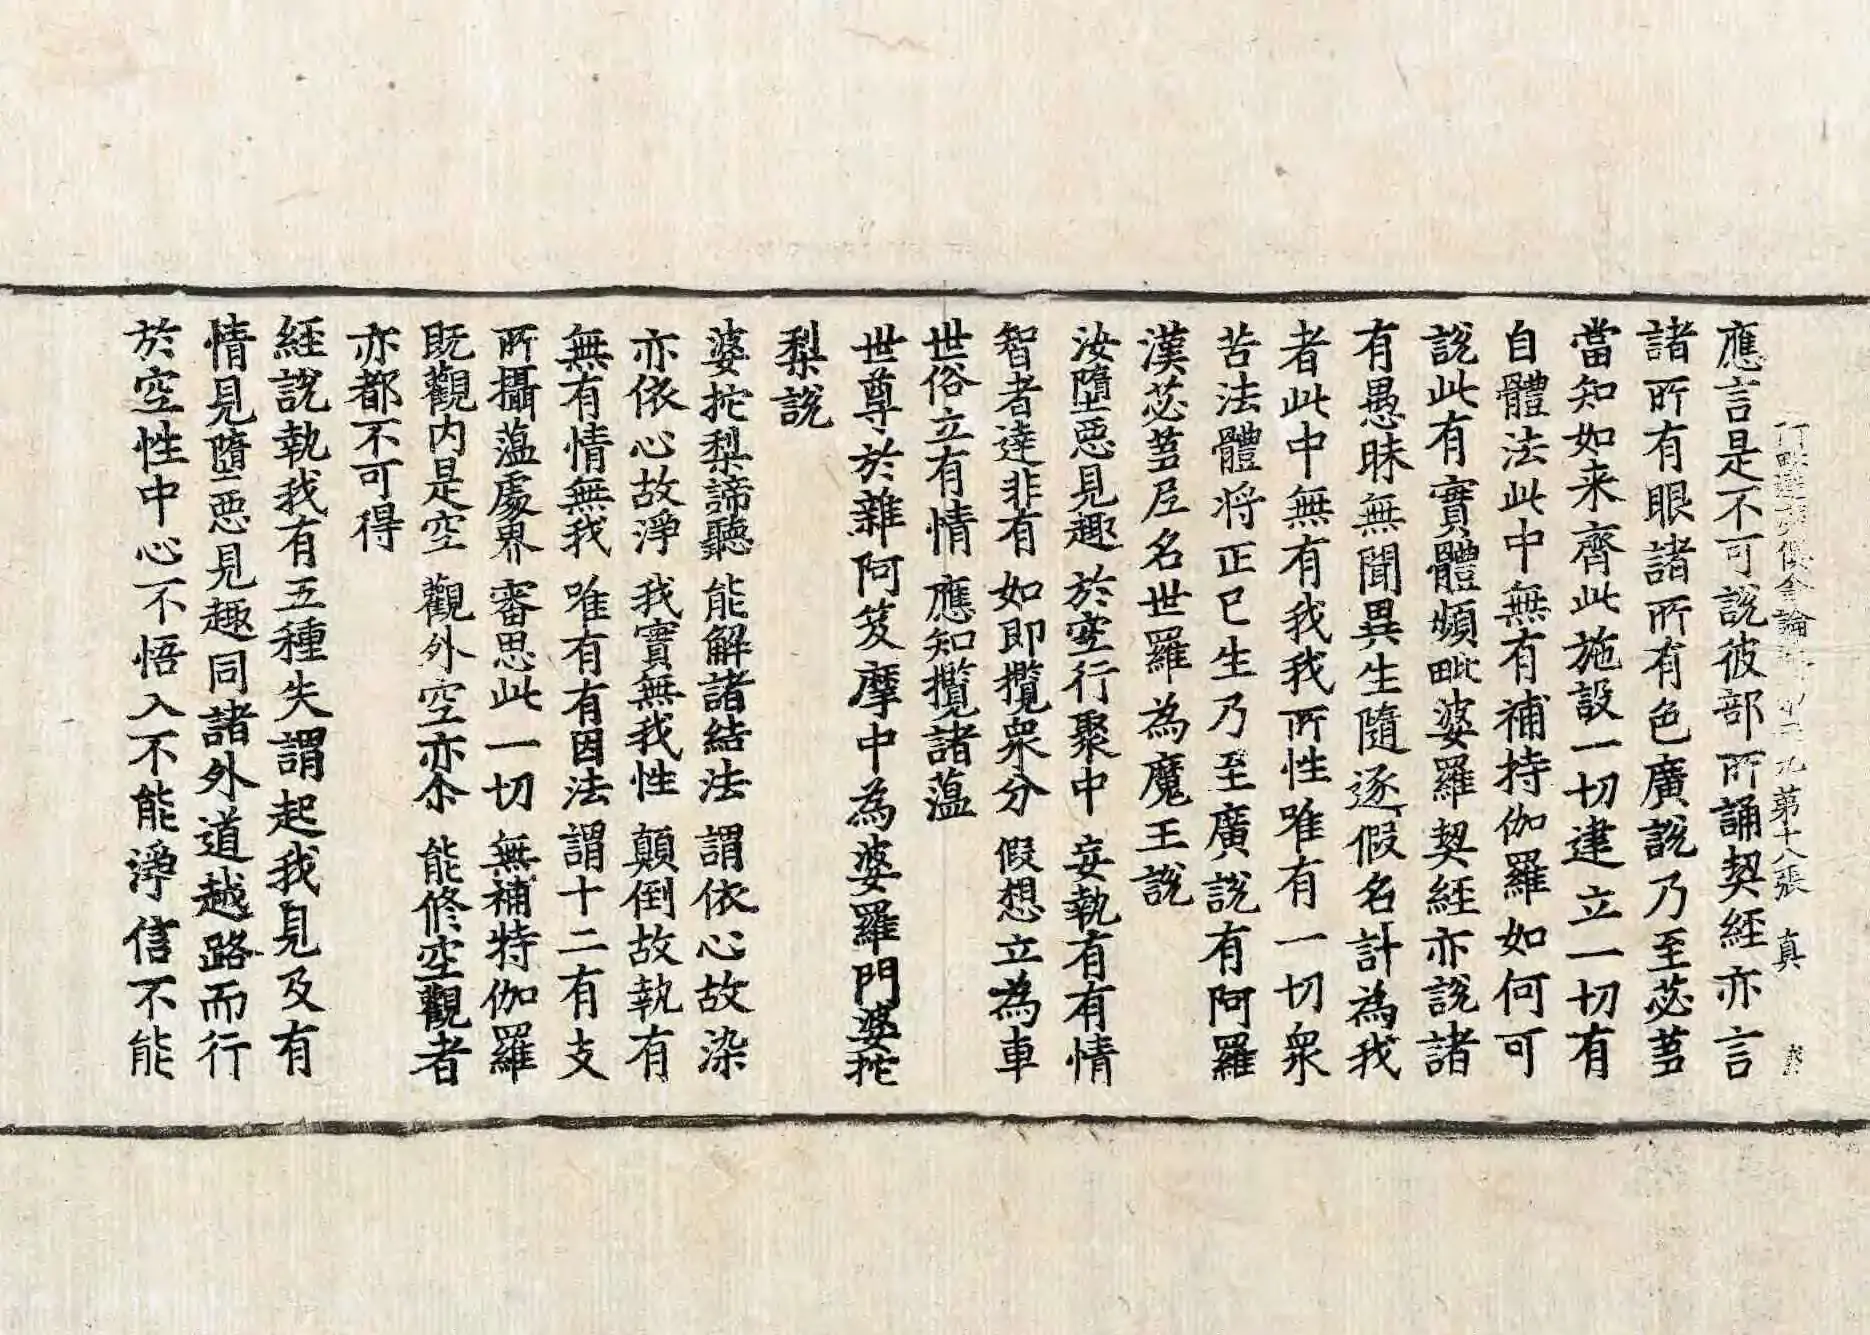 阿毗達磨俱舍論 第十八張 真
應言是不可說彼部所誦契經亦言
諸所有眼諸所有色廣說乃至苾芻
當知如来齊此施設一切建立一切有
自體法此中無有補持伽羅如何可
說此有實體頻毗婆羅契經亦說諸
有愚昧無聞異生隨逐假名計為我
者此中無有我我所性唯有一切衆
苦法體将正已生乃至廣說有阿羅
漢苾芻尼名世羅為魔王說
汝墮惡見趣 於空行聚中 妄執有有情
智者達非有 如即攬衆分 假想立為車
世俗立有情 應知攬諸蕰
世尊於雜阿笈摩中為婆羅門婆拕
梨說
婆拕梨諦聽 能解諸結法 謂依心故染
亦依心故淨 我實無我性 顛倒故執有
無有情無我 唯有有因法 謂十二有支
所攝蕰處界 審思此一切 無補特伽羅
既觀內是空 觀外空亦尒 能修空觀者
亦都不可得
經說執我有五種失謂起我見及有
情見墮惡見趣同諸外道越路而行
於空性中心不悟入不能淨信不能